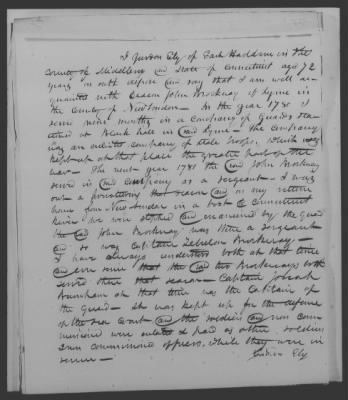 I Gurdon Ely of East Haddam in the
County of Middlesex and State of Connecticut aged 72
years on oath depose and say that I am well ac-
quainted with Deacon John Brockway of Lyme in
the County of New London - In the year 1780 I
served nine months in a Company of Guards sta-
tioned at Black hall in said Lyme. The Company
was an enlisted company of state troops, which was
kept up at that place the greatest part of the
war - The next year 1781 the said John Brockway
served in said Company as a Sergeant - I was
out a privateering that season and on my return
home from New London in a boat Connecticut
River we were stopped and examined by the Guard
the said John Brockway was then a sergeant
and so was Captain Zebulon Brockway -
I have always understood both at that time
and ever since that the said two Brockways both
served there that season - Captain
at that time was the Captain of
the Guard - was kept up for the defense
of the sea Coast and the soldiers and non com-
missioned were and paid as other soldiers
& non commissioned officers, while they were in
service -
Gurdon Ely